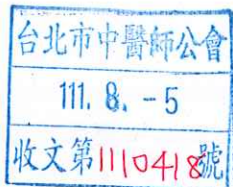 台北市中醫師公會
111. 8. -5
收文第1110418號